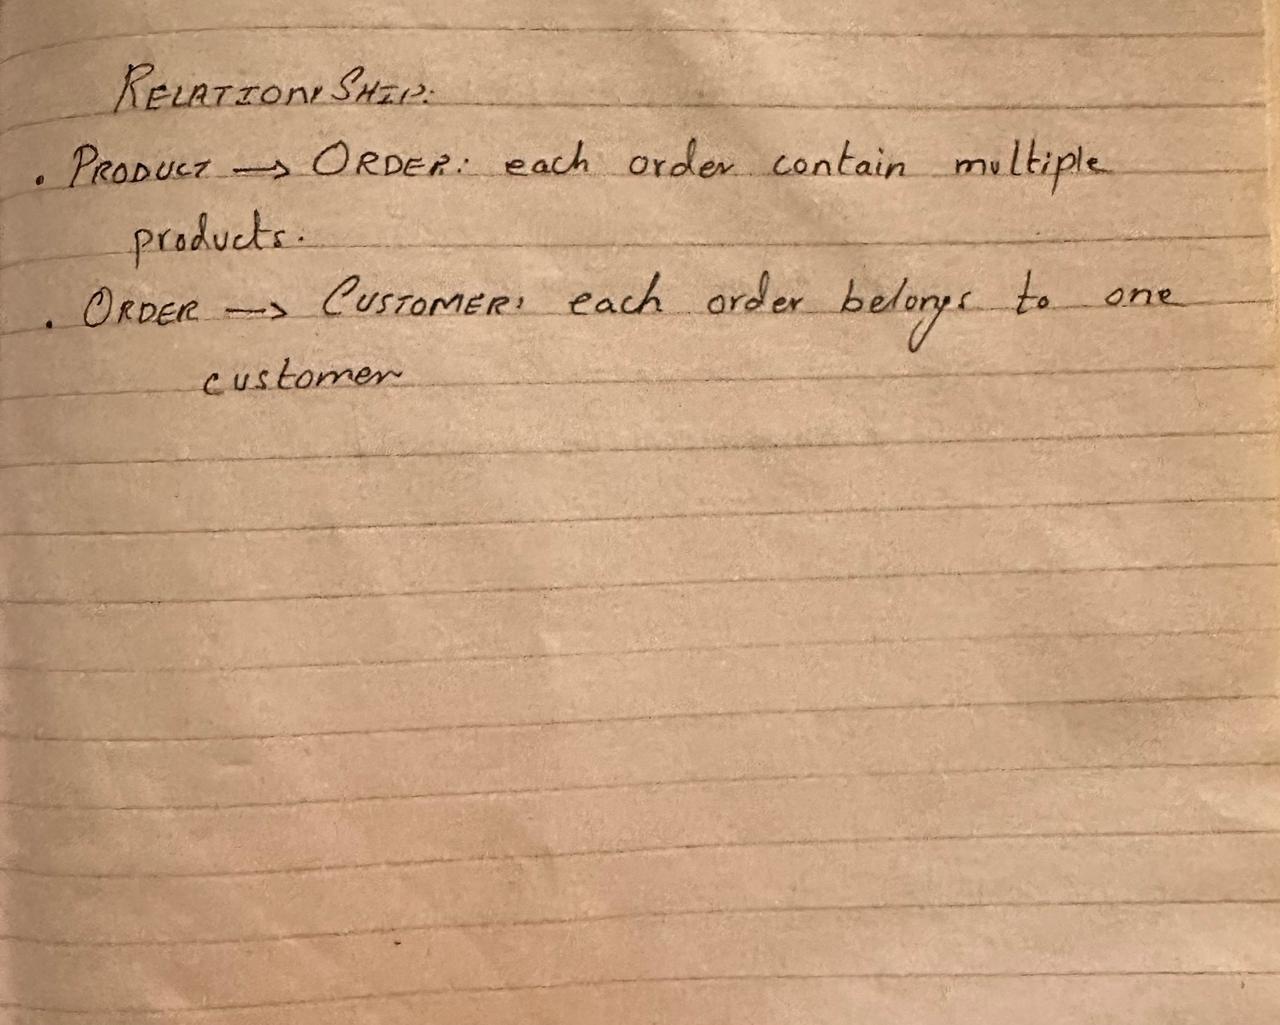 RELATIONSHIP:
. PRODUCT → ORDER: each order contain multiple
products.
. ORDER → CUSTOMER: each order belongs to one
customer